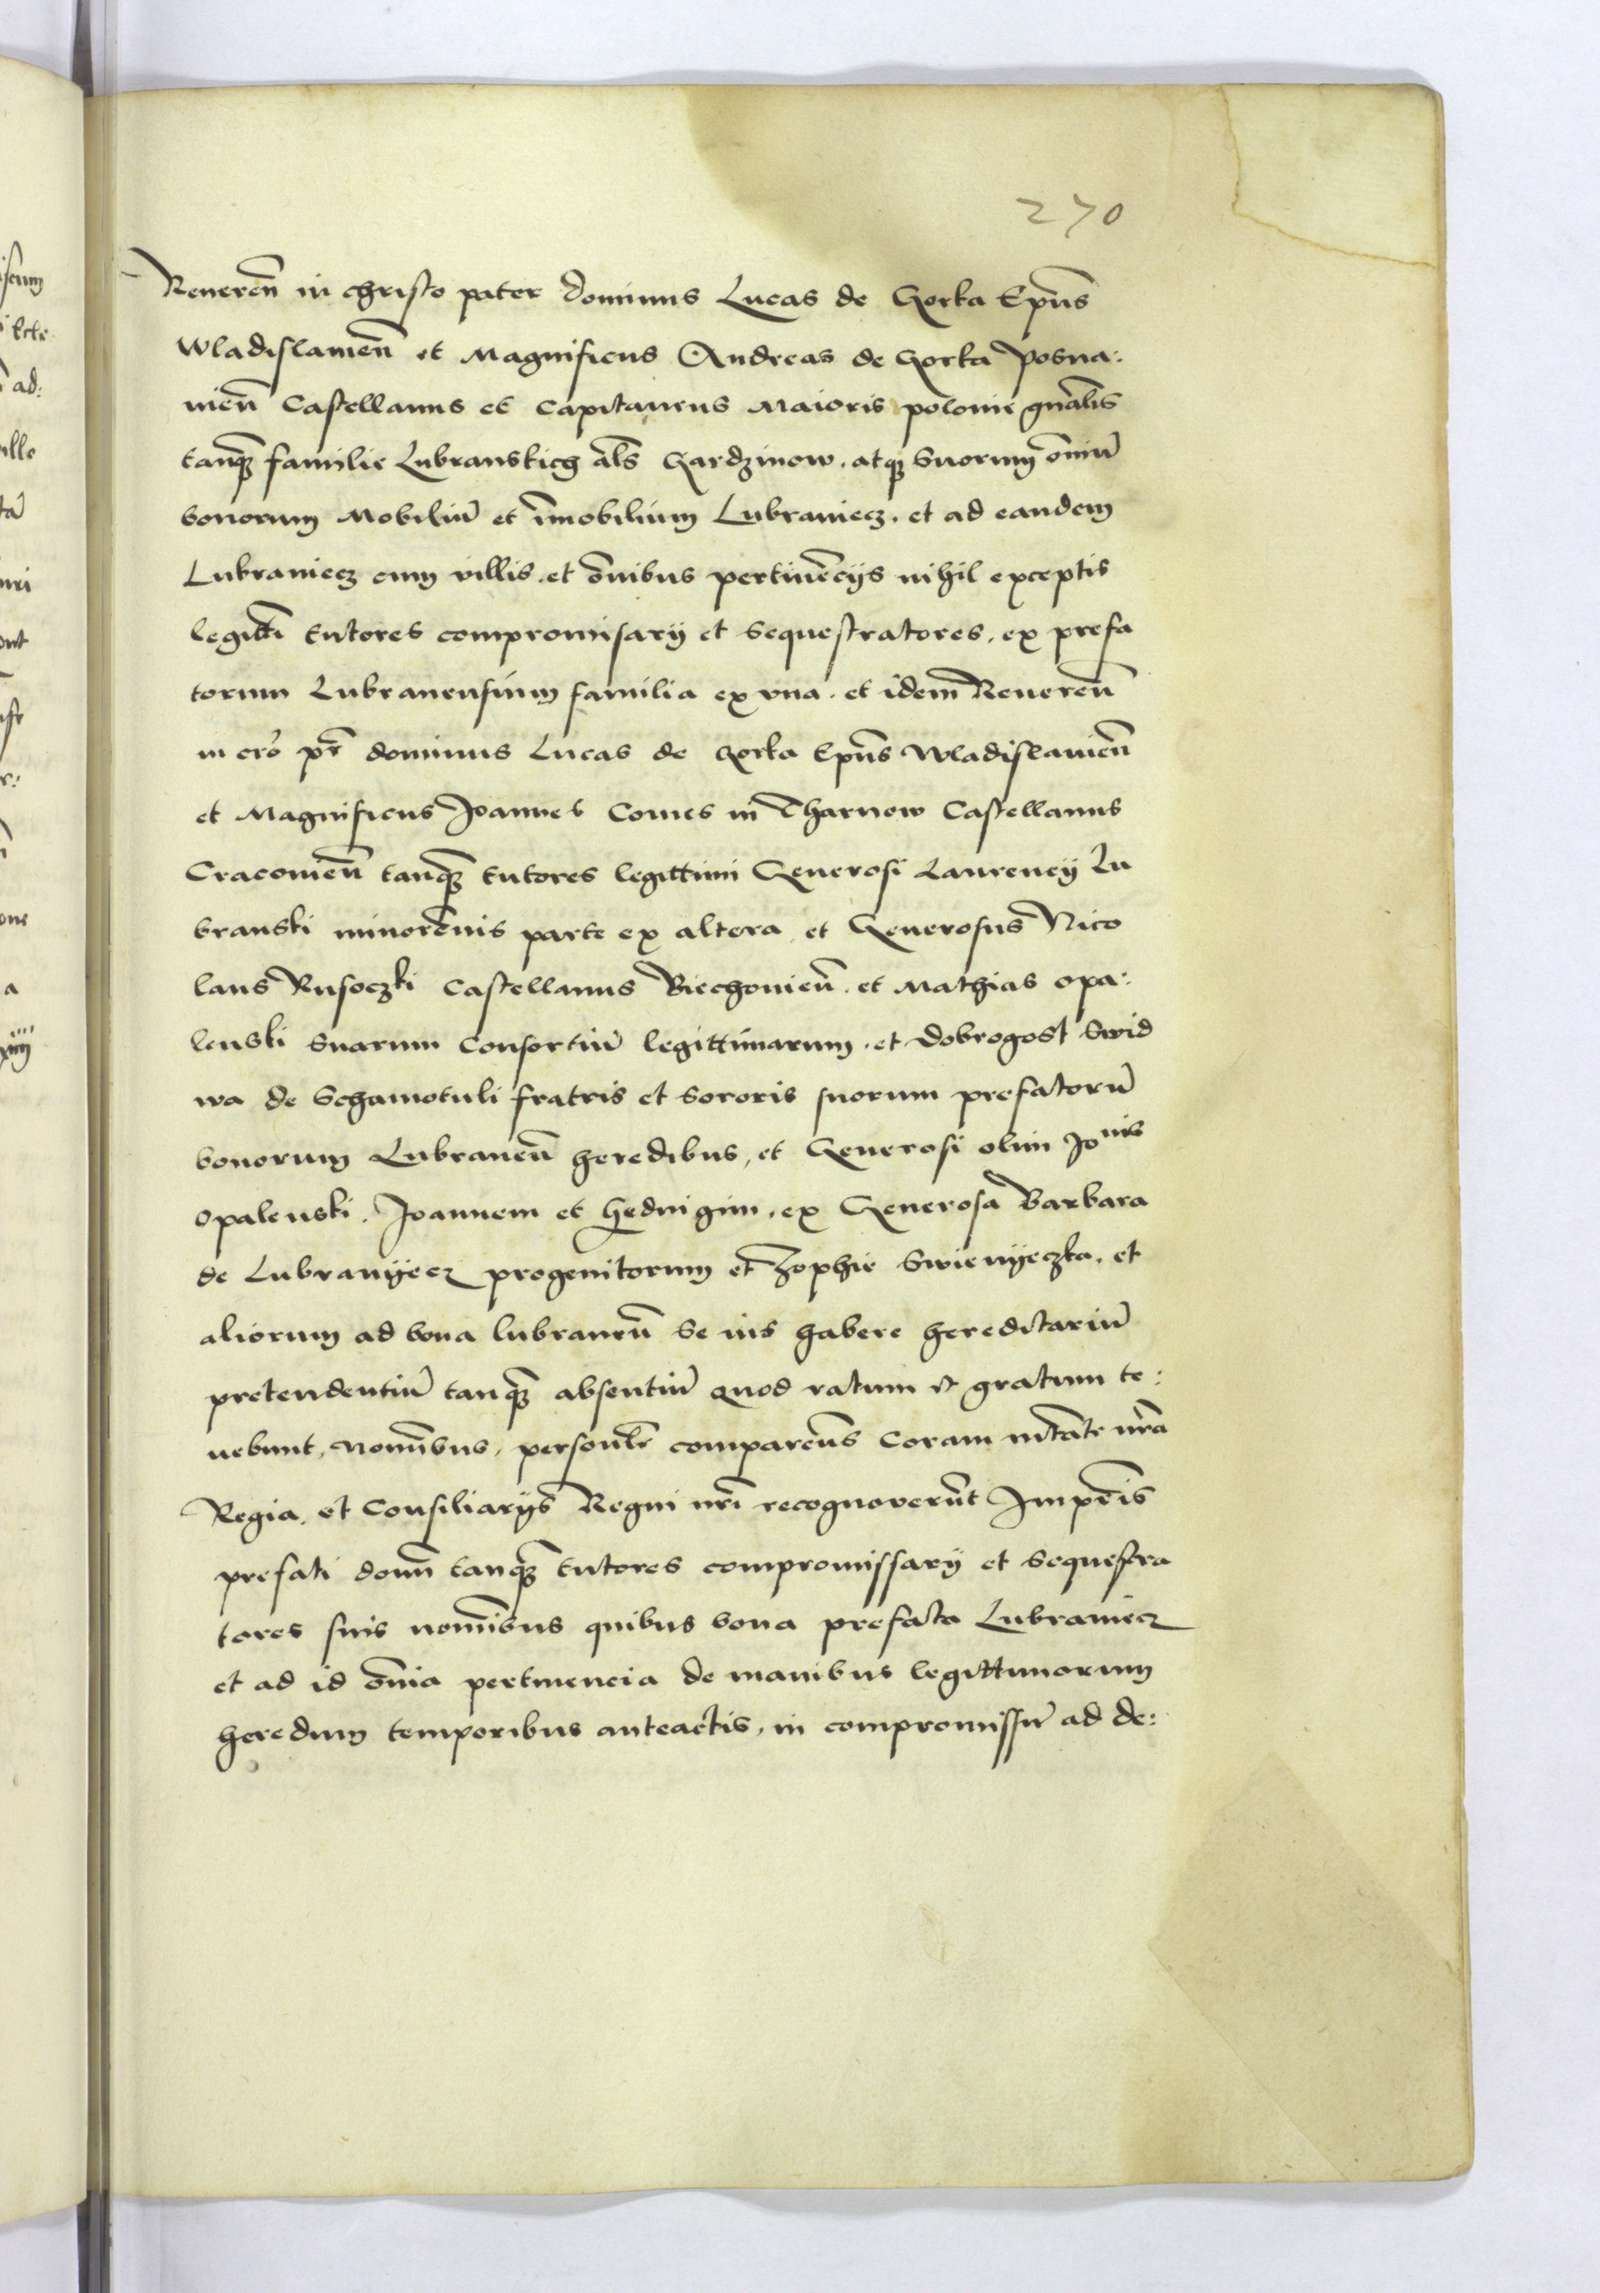 270
Reueren̄ in christo pater dominus Lucas de Gorka Ep̄us
Wladislauien̄ et Magnificus Andreas de Gorka Posna:
nien̄ Castellanus et Capitaneus Maioris polonie gn̄alis
tanq̄ꝫ familie Lubranskich al̄s Gardzinow. atqꝫ Suorum om̄iū
bonorum Mobiliū et im̄obilium Lubraniecz. et ad eandem
Lubraniecz cum villis. et om̄ibus pertinēcijs nihil exceptis
legitt̄i tutores compromisarij et sequestratores. ex prefa
torum Lubranensium familia ex vna. et idem Reueren̄
in cr̄o pr̄ dominus Lucas de Gorka Ep̄us Wladislauien̄
et Magnificus Joannes Comes in Tharnow Castellanus
Cracouien̄ tanq̄ꝫ tutores legittimi Generosi Laurencij Lu
branski minorēnis parte ex altera et Generosus Nico
laus Rusoczki Castellanus Biechouien̄. et Mathias Opa:
lenski Suarum Consortiū legittimarum. et Dobrogost Swid
wa de Schamotuli fratris et Sororis suorum prefatorū
bonorum Lubranen̄ heredibus, et Generosi olim Jonis
Opalenski. Joannem et Heduigim. ex Generosa Barbara
de Lubranyecz progenitorum et Zophie Swienyeczka. et
aliorum ad bona lubranen̄ se ius habere hereditariū
pretendentiū tanq̄ꝫ absentiū quod ratum et gratum te:
nebunt. nom̄ibus. personl̄r comparen̄s Coram mtāte nr̄a
Regia. et Consiliarijs Regni nr̄i recognouerūt Impr̄is
prefati domn̄ tanq̄ꝫ tutores compromissarij et Sequestra
tores suis nom̄ibus quibus bona prefata Lubraniecz
et ad id om̄ia pertinencia de manibus legittimorum
heredum temporibus anteactis. in compromissū ad de: